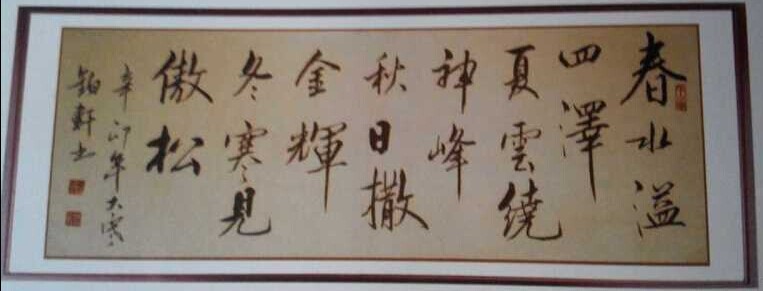 春水溢
四澤
夏雲繞
神峰
秋日撒
金輝
冬寒見
傲松
辛卯年大寒
鉑軒书